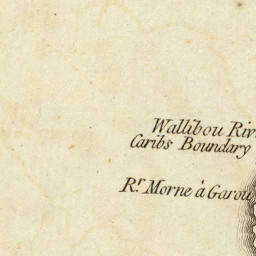 Wallibou Riv
Caribs Boundary
R.r Morne à Garou